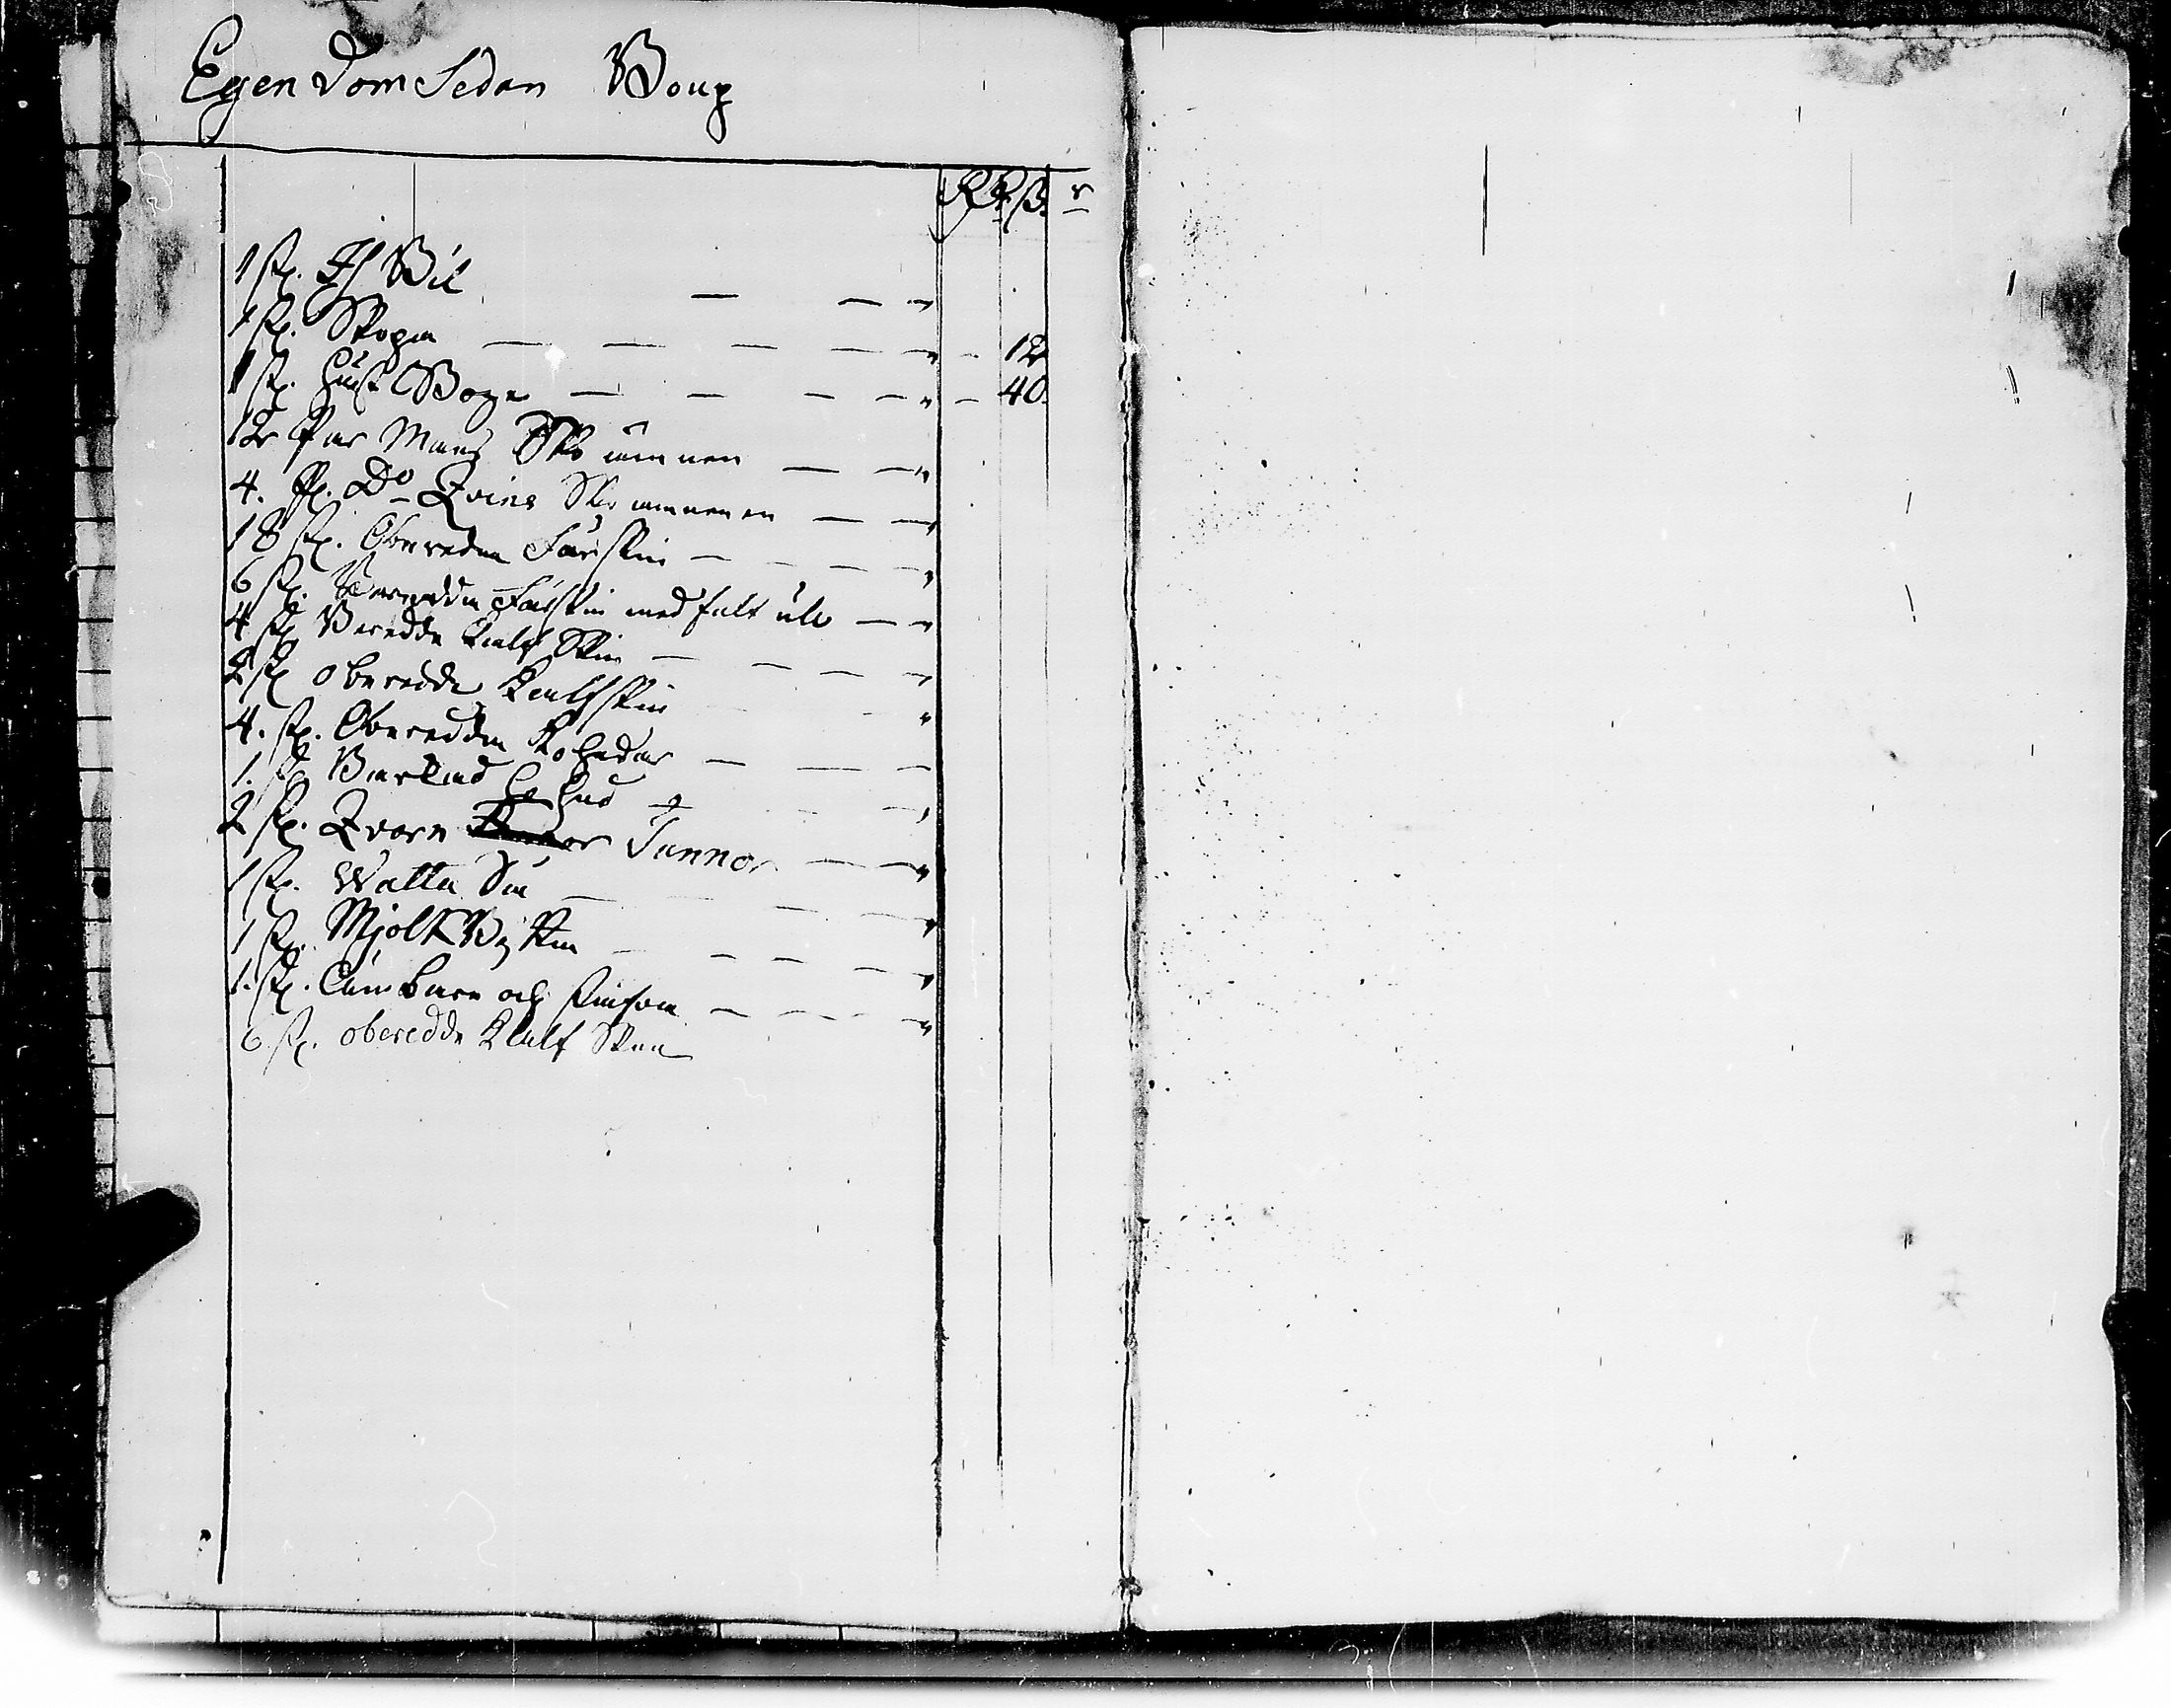 Egendom Sedan Boup
RD. ß. r
1 st. Bil
1 st. Skopa 12
1 st. Boge 40.
12 Par Mans Sko ämnen
4. P. Do Qvins Sko ämnenen
18 st. Obereden Fårskin
6 st. Beredda Fårskin med full ull
4 st Beredda Kalf Skin
2 st oberedde Kalfskin
4. st. Oberedda Kohudar
1. st Barkad hud
2 st. Qvarn Tunnor
1 st. Watta Så
1 st. Mjolk Bytta
1. st. och
6 st. oberedde Kalf Sken